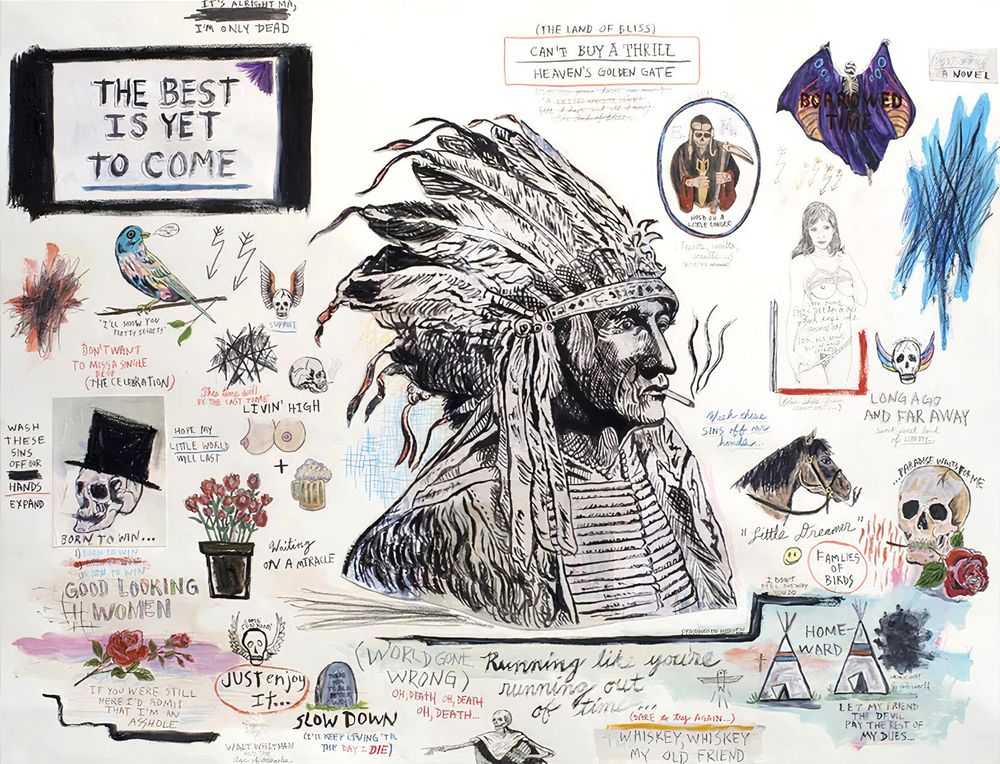 IT'S ALRIGHT MA,
I'M ONLY DEAD
(THE LAND OF BLISS)
CAN'T BUY A THRILL
HEAVEN'S GOLDEN GATE
A NOVEL
THE BEST
IS YET
TO COME
BORROWED
TIME
HOLD ON A
LITTLE LONGER
"I'LL SHOW YOU
PRETTY SECRETS"
SUPPORT
DON'T WANT
TO MISS A SINGLE
DROP
(THE CELEBRATION)
This time will
BE THE LAST TIME
LIVIN' HIGH
LONG AGO
AND FAR AWAY
WASH
THESE
SINS
OFF OUR
HANDS
EXPAND
HOPE MY
LITTLE WORLD
WILL LAST
+
Wash these
SINS off our
hands...
...PARADISE WAITS FOR ME
BORN TO WIN...
BORN TO WIN
"Little Dreamer"
FAMLIES
OF
BIRDS
Waiting
ON A MIRACLE
GOOD LOOKING
WOMEN
I DON'T
YOU DO
HOME-
WARD
(WORLD GONE
WRONG)
OH, DEATH OH, DEATH
OH, DEATH...
Running like you're
running out
of time...
JUST enjoy
IT...
IF YOU WERE STILL
HERE I'D ADMIT
THAT I'M AN
ASSHOLE
SLOW DOWN
(I'LL KEEP LIVING 'TIL
THE DAY I DIE)
WALT WHITMAN
(DARE to try AGAIN...)
WHISKEY, WHISKEY
MY OLD FRIEND
LET MY FRIEND
THE DEVIL
PAY THE REST OF
MY DUES...